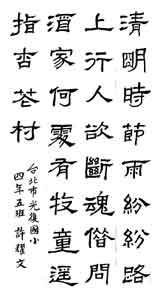 清明時節雨紛紛路
上行人欲斷魂借問
酒家何處有牧童遙
指杏花村
台北市光復國小
四年五班 許耀文